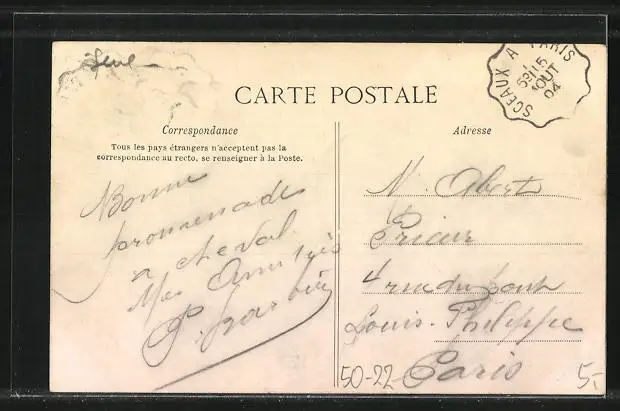 Seine
SCEAUX A PARIS
5E 15
AOUT
04
CARTE POSTALE
Correspondance
Tous les pays étrangers n'acceptent pas la
correspondance au recto, se renseigner à la Poste.
Bonne
promenade
a cheval.
Mes Amitiés
Adresse
M. Albert
Prieur
4 rue du pont
Louis-Philippe
Paris
50-22-
5,-